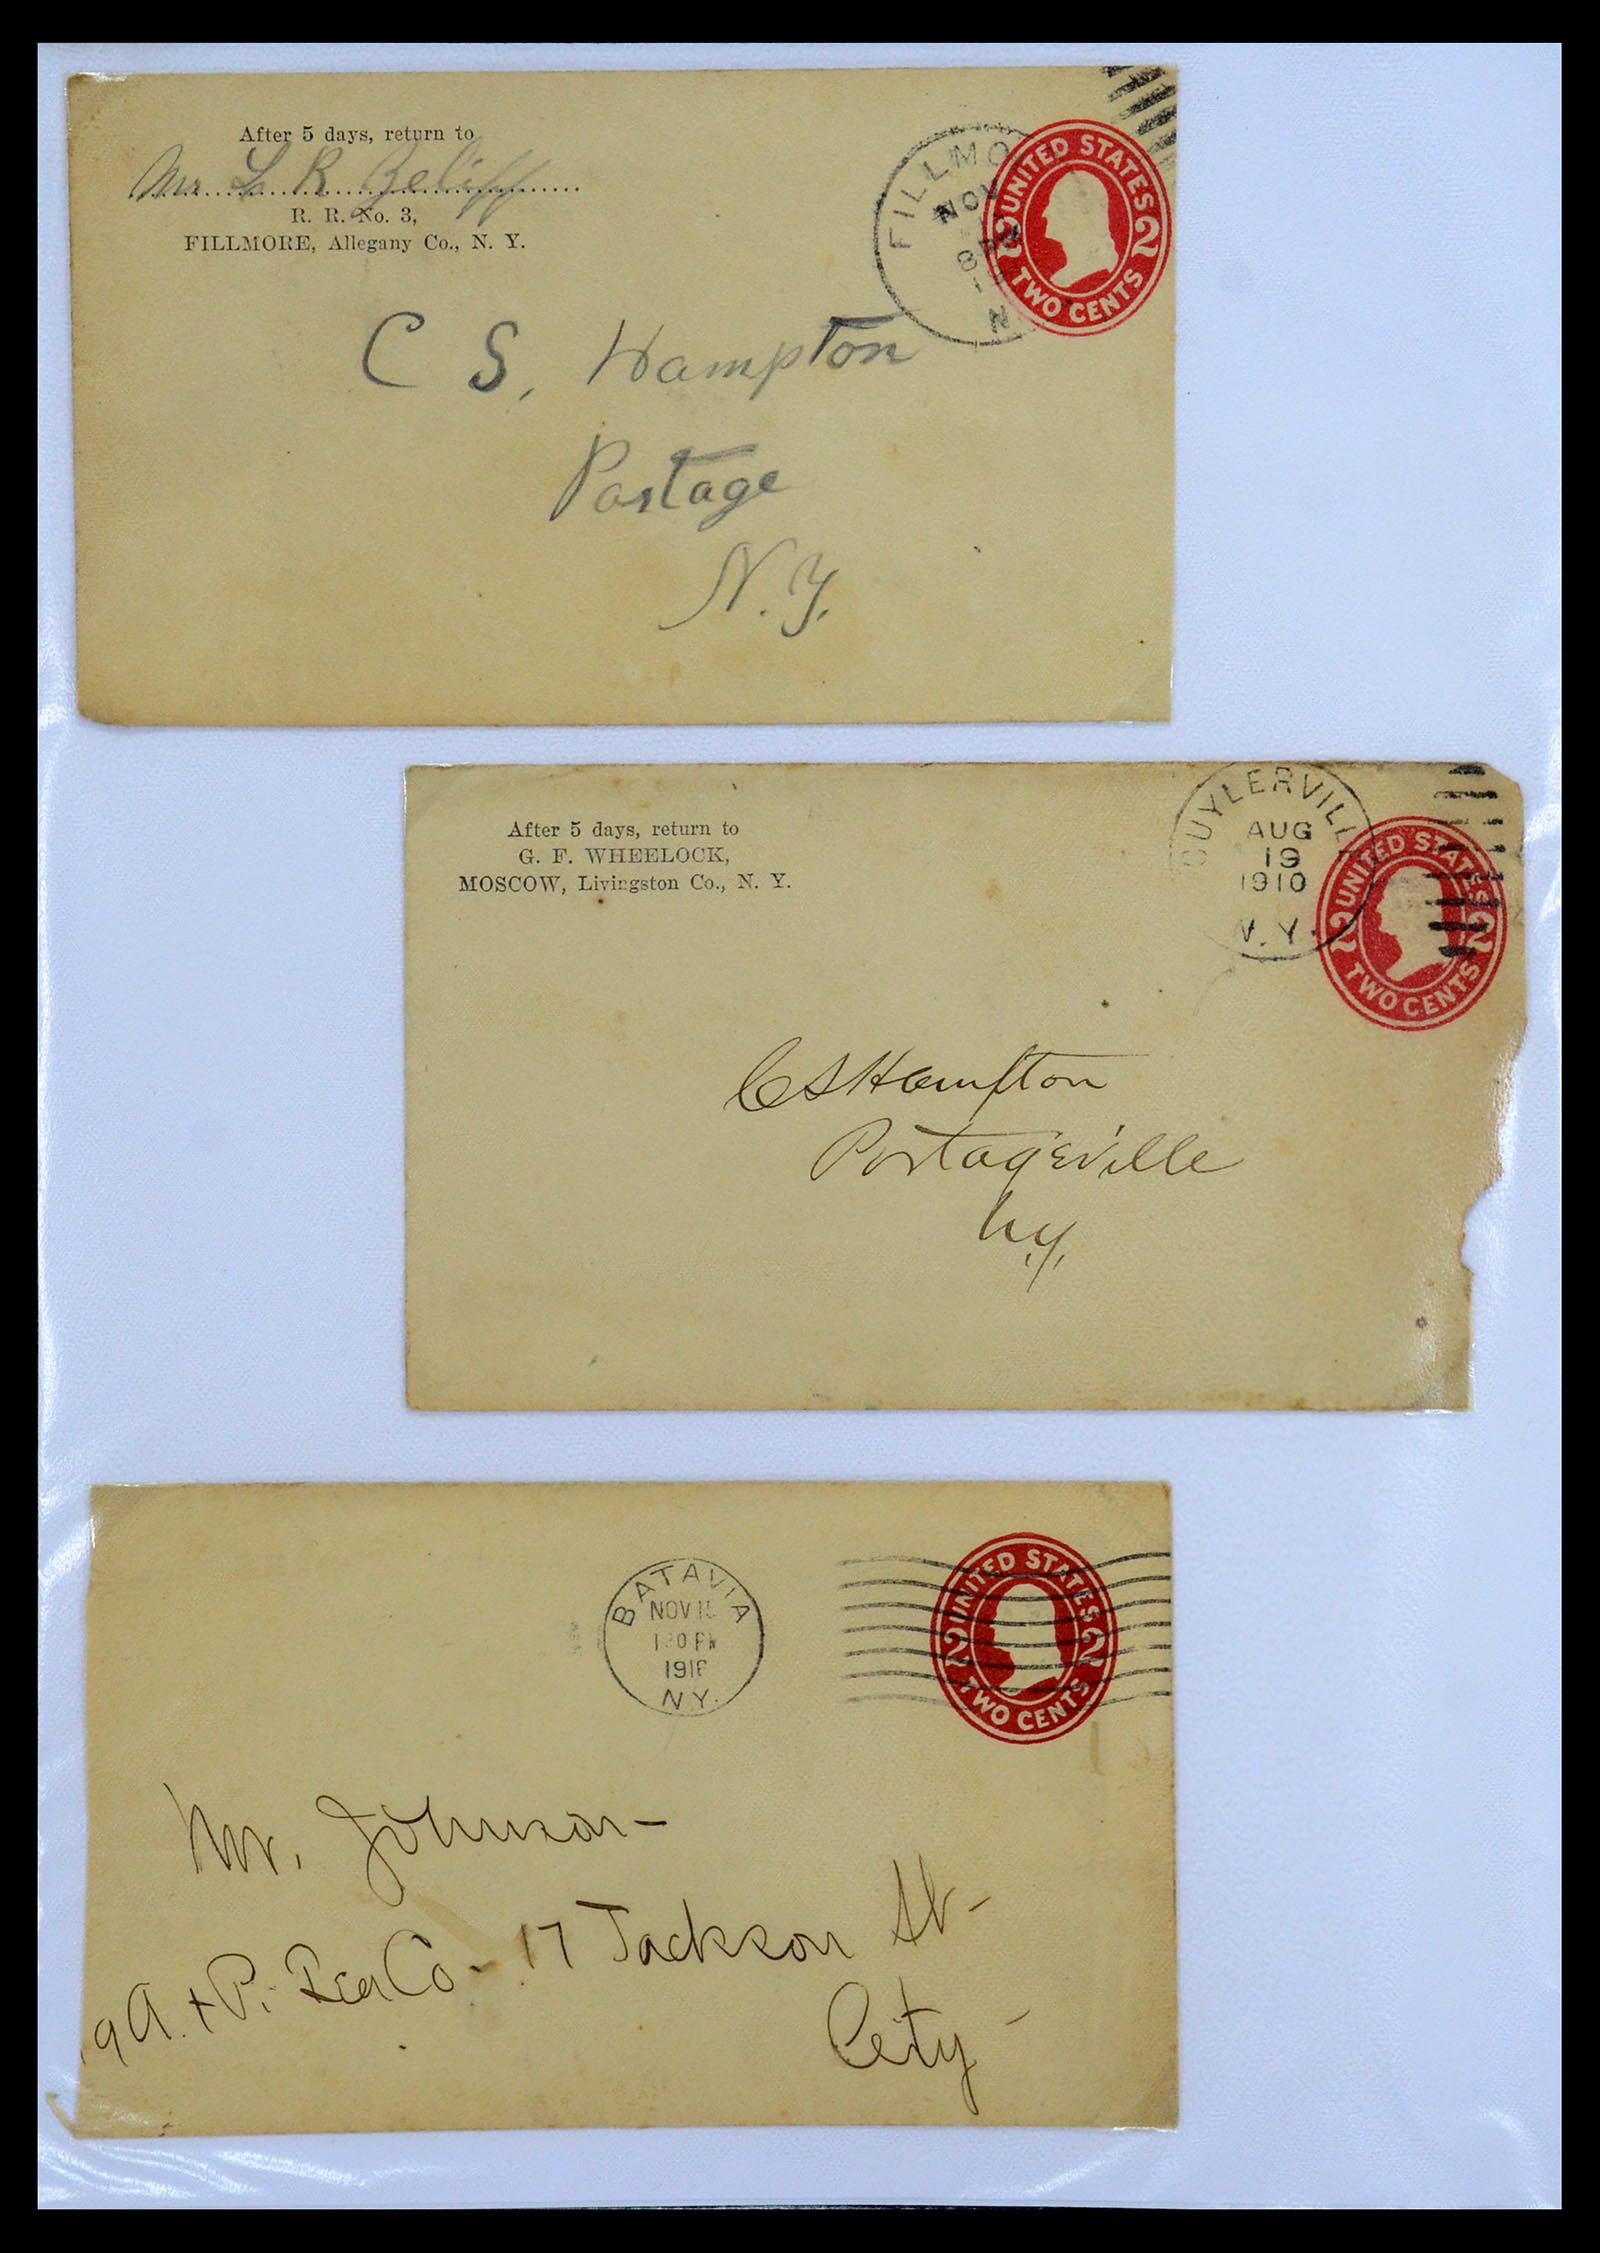 After 5 days, return to
Mr L R Zeliff
R. R. No. 3,
FILLMORE, Allegany Co., N. Y.
FILLMO
NOV
8 PM
N
UNITED STATES
2 2
TWO CENTS
C S. Hampton
Portage
N.Y.
After 5 days, return to
G. F. WHEELOCK,
MOSCOW, Livingston Co., N. Y.
CUYLERVILL
AUG
19
1910
N. Y.
UNITED STATES
2 2
TWO CENTS
C S Hampton
Portageville
N.Y.
BATAVIA
NOV
PM
N.Y.
UNITED STATES
2 2
TWO CENTS
Mr. Johnson-
A. + P. Tea Co - 17 Jackson St-
City -